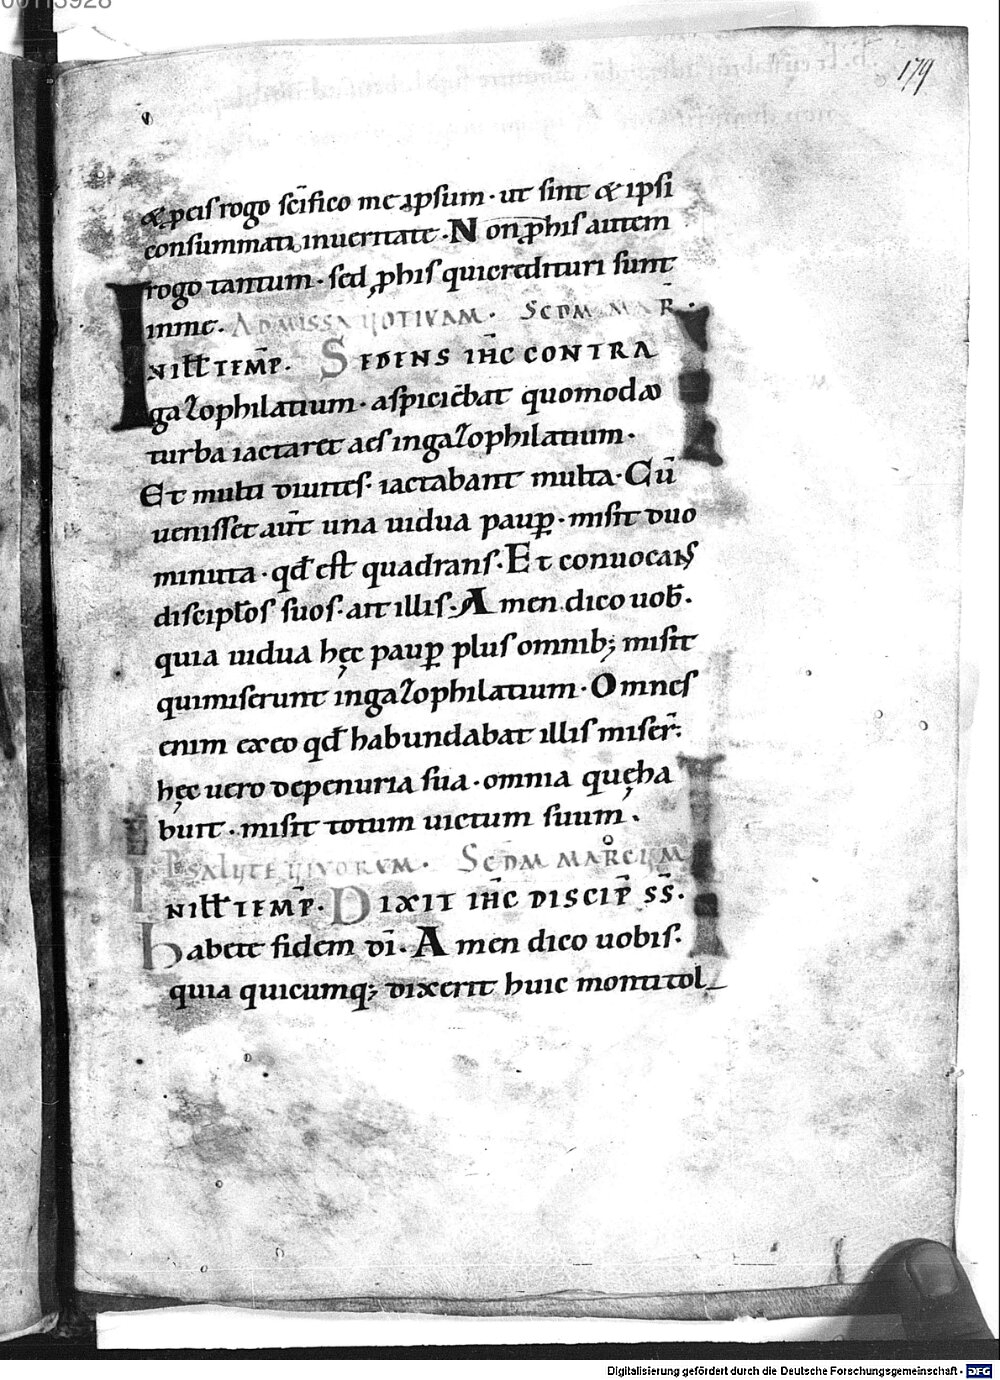 00113928
179
& p eis rogo sc̄ifico me ipsum · ut sint & ipsi
consummati inueritate · Non p his autem
rogo tantum · sed p his quicredituri sunt
inme. AD MISSA VOTIVAM · SCDM MAR̄ ·
INILLTEM̄P. SEDENS IH̄C CONTRA
gazophilatium · aspicieb̄at quomodo
turba iactaret aes ingazophilatium ·
Et multi diuites · iactabant multa · Cū
uenisset aūt una uidua paup · misit duo
minuta · qđ est quadrans · Et conuocans
discip̄los suos · ait illis · Amen dico uob̄ ·
quia uidua hęc paup plus omnib; misit
quimiserunt ingazophilatium · Omnes
enim exeo qđ habundabat illis miser̄:
hęc uero depenuria sua · omnia quęha
buit · misit totum uictum suum ·
P SALUTE VIVORVM · SCDM MARCUM
INILLTEM̄P · DIXIT IH̄C DISCIP̄ SS̄ ·
habete fidem dī · Amen dico uobis ·
quia quicumq; dixerit huic montitol
Digitalisierung gefördert durch die Deutsche Forschungsgemeinschaft - DFG